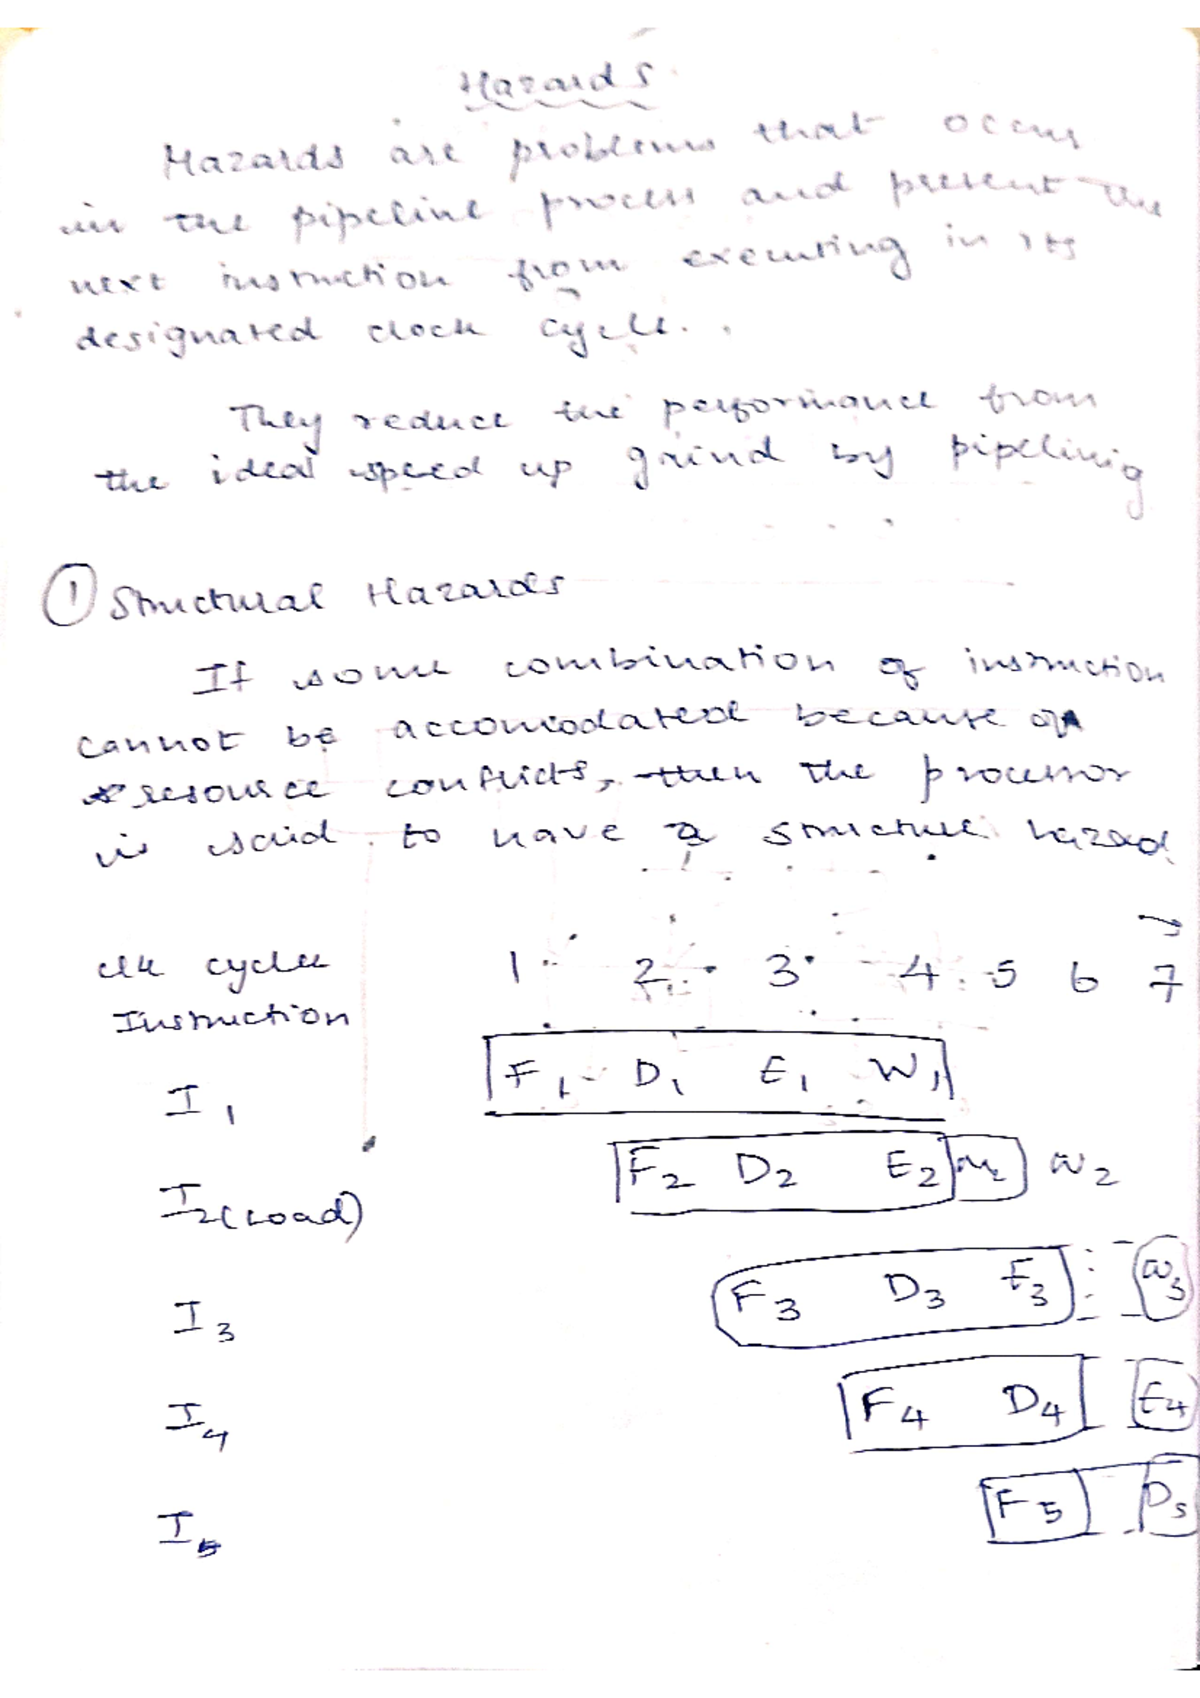 Hazards
Hazards are problems that occur
in the pipeline process and prevent the
next instruction from executing in its
designated clock cycle.
They reduce the performance from
the ideal speed up gaind by pipelining
① Structural Hazards
If some combination of instruction
cannot be accomodated because of
resource conflicts, then the processor
is said to have a structure hazard
clk cycle 1 2 3 4 5 6 7 →
Instruction
I1 F1 D1 E1 W1
I2(Load) F2 D2 E2 M2 W2
I3 F3 D3 E3 W3
I4 F4 D4 E4
I5 F5 D5